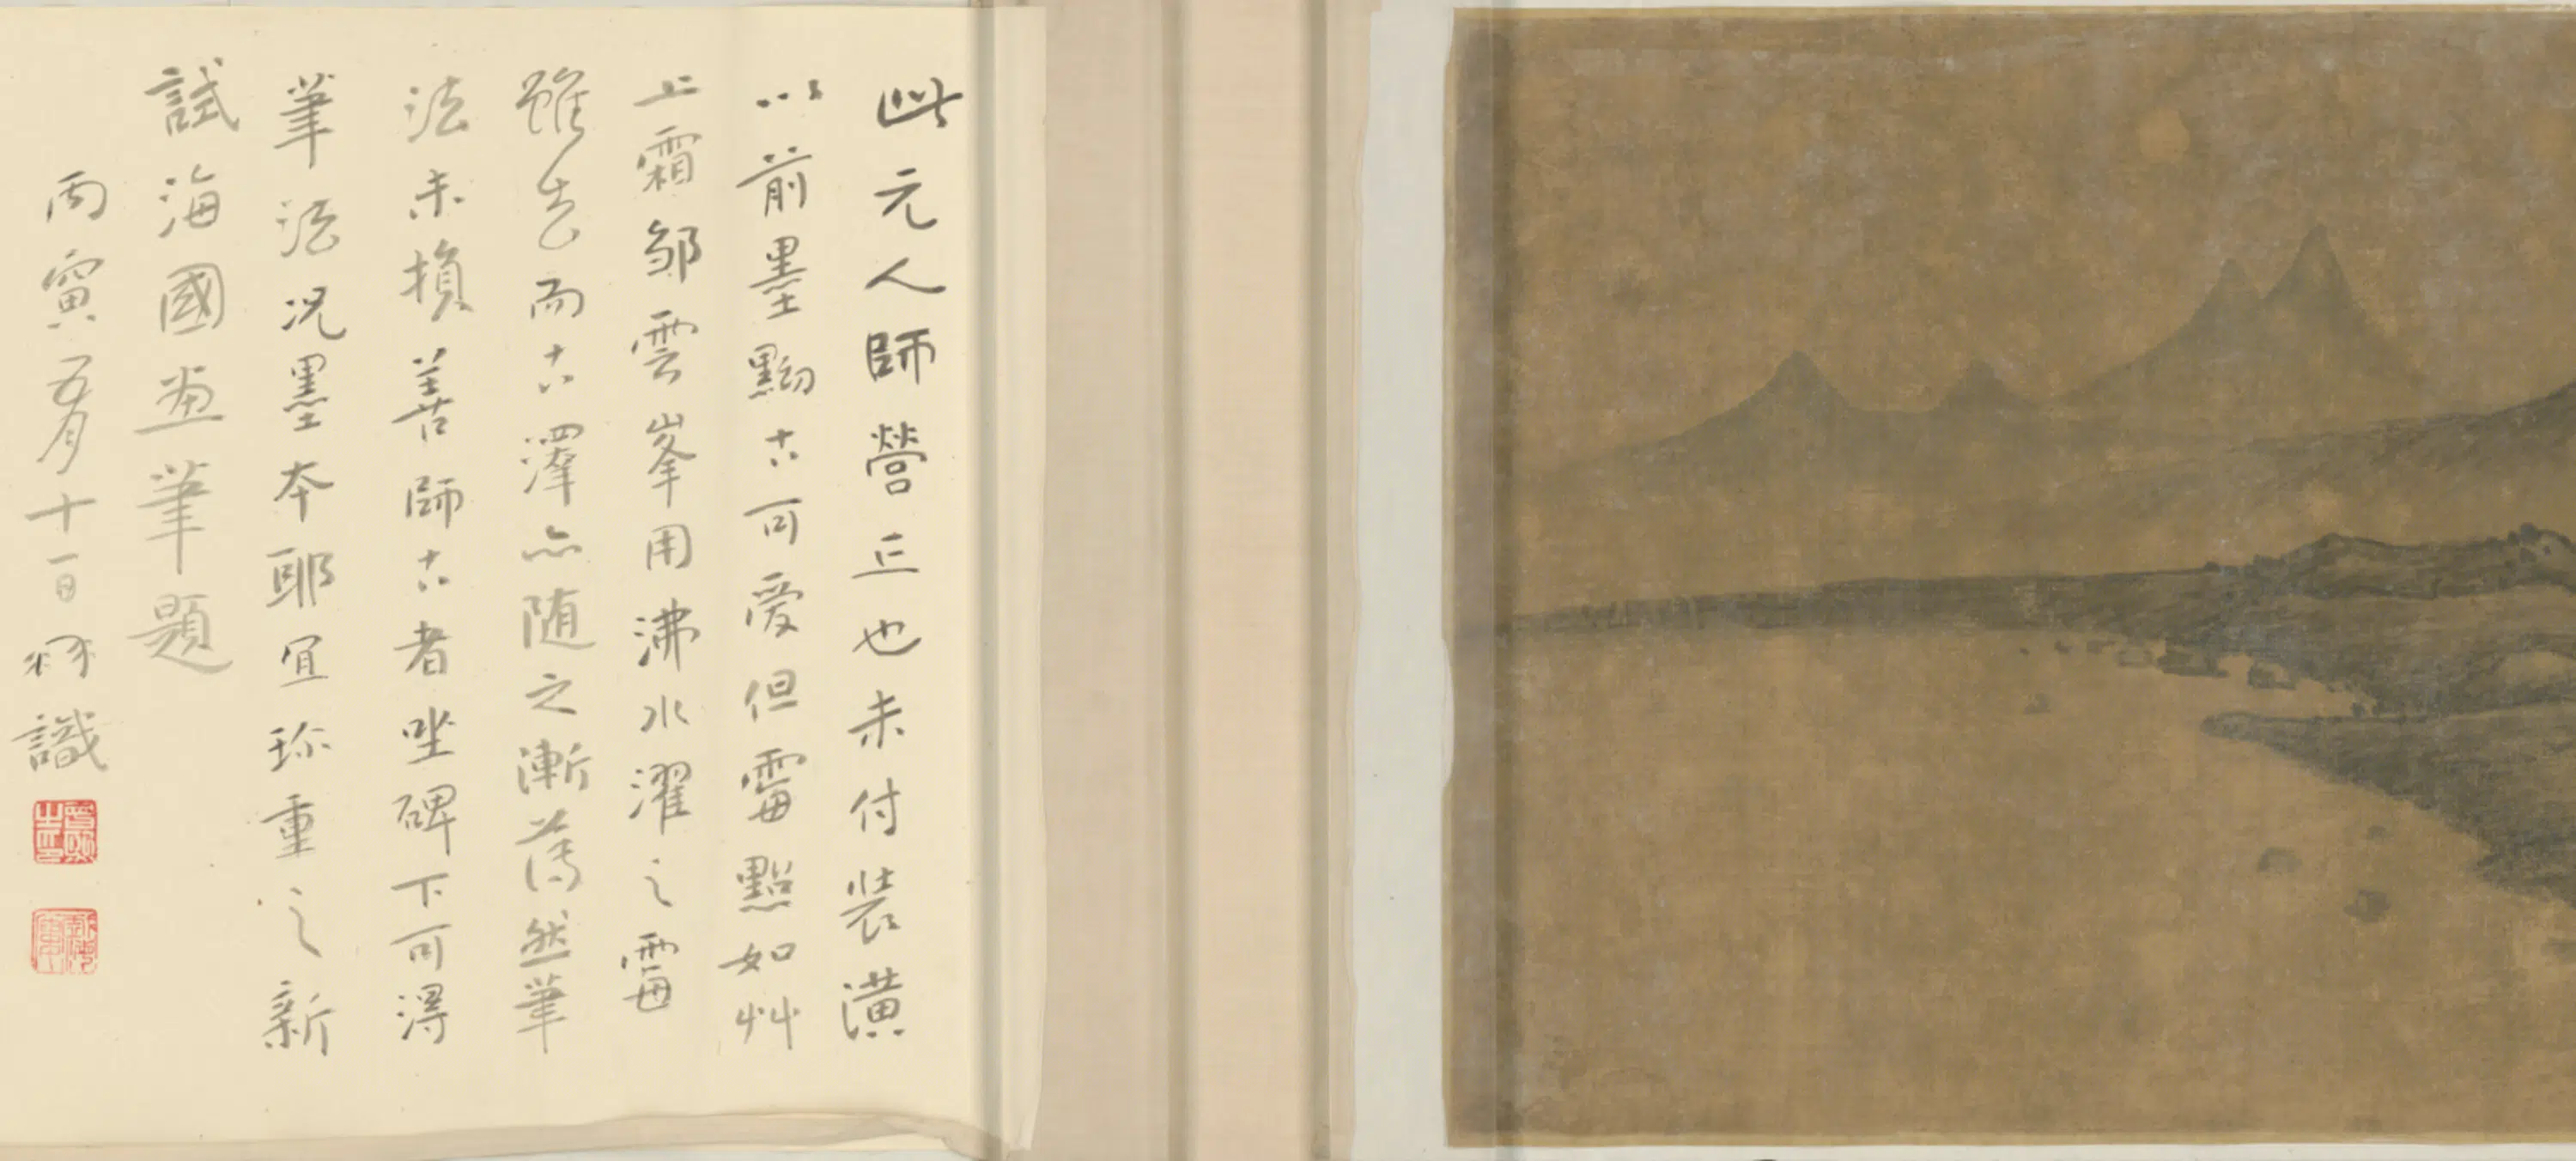 此元人師營丘也未付裝潢
以前墨黝古可愛但霉點如艸
上霜鄒雲峯用沸水濯之霉
雖去而古澤亦随之漸薄然筆
法未損善師古者坐碑下可得
筆法況墨本耶宜珎重之新
試海國画筆題
丙寅五月十一日 識